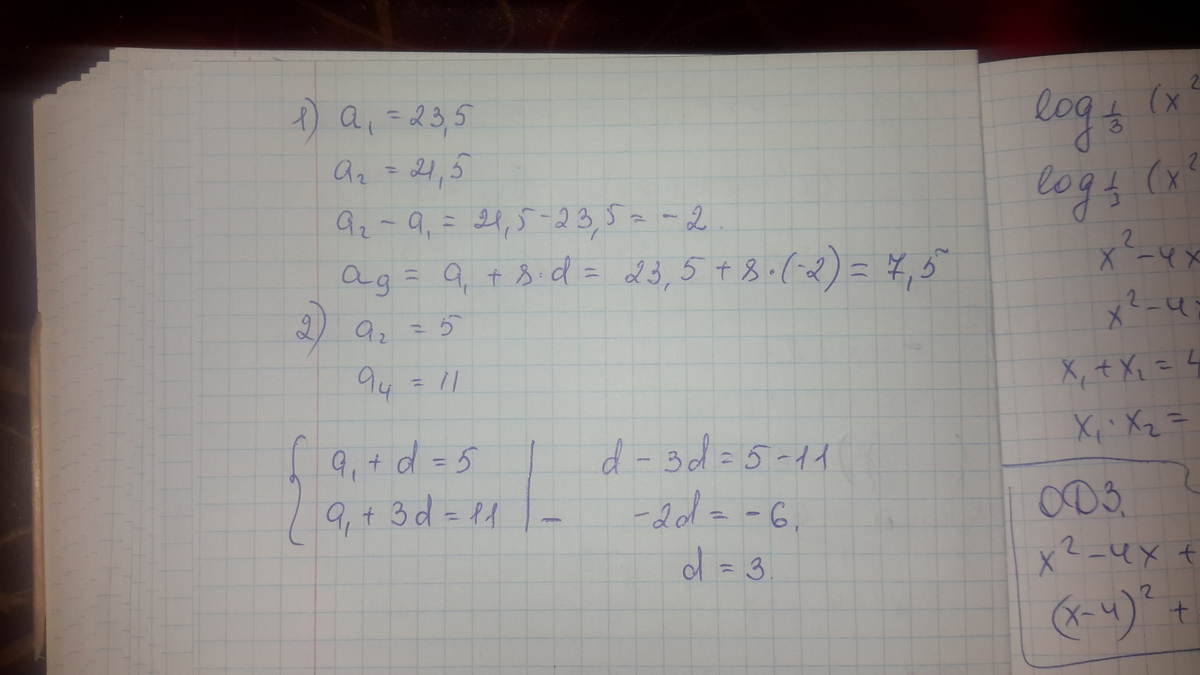 1) a₁ = 23,5
a₂ = 21,5
a₂ - a₁ = 21,5 - 23,5 = -2.
a₉ = a₁ + 8·d = 23,5 + 8·(-2) = 7,5
2) a₂ = 5
a₄ = 11
{ a₁ + d = 5 | d - 3d = 5 - 11
a₁ + 3d = 11 | - -2d = -6.
d = 3.
log 1/3 (x²
log 1/3 (x²
x² - 4x
x² - 4x
x₁ + x₂ = 4
x₁ · x₂ =
ОДЗ.
x² - 4x +
(x-4)² +